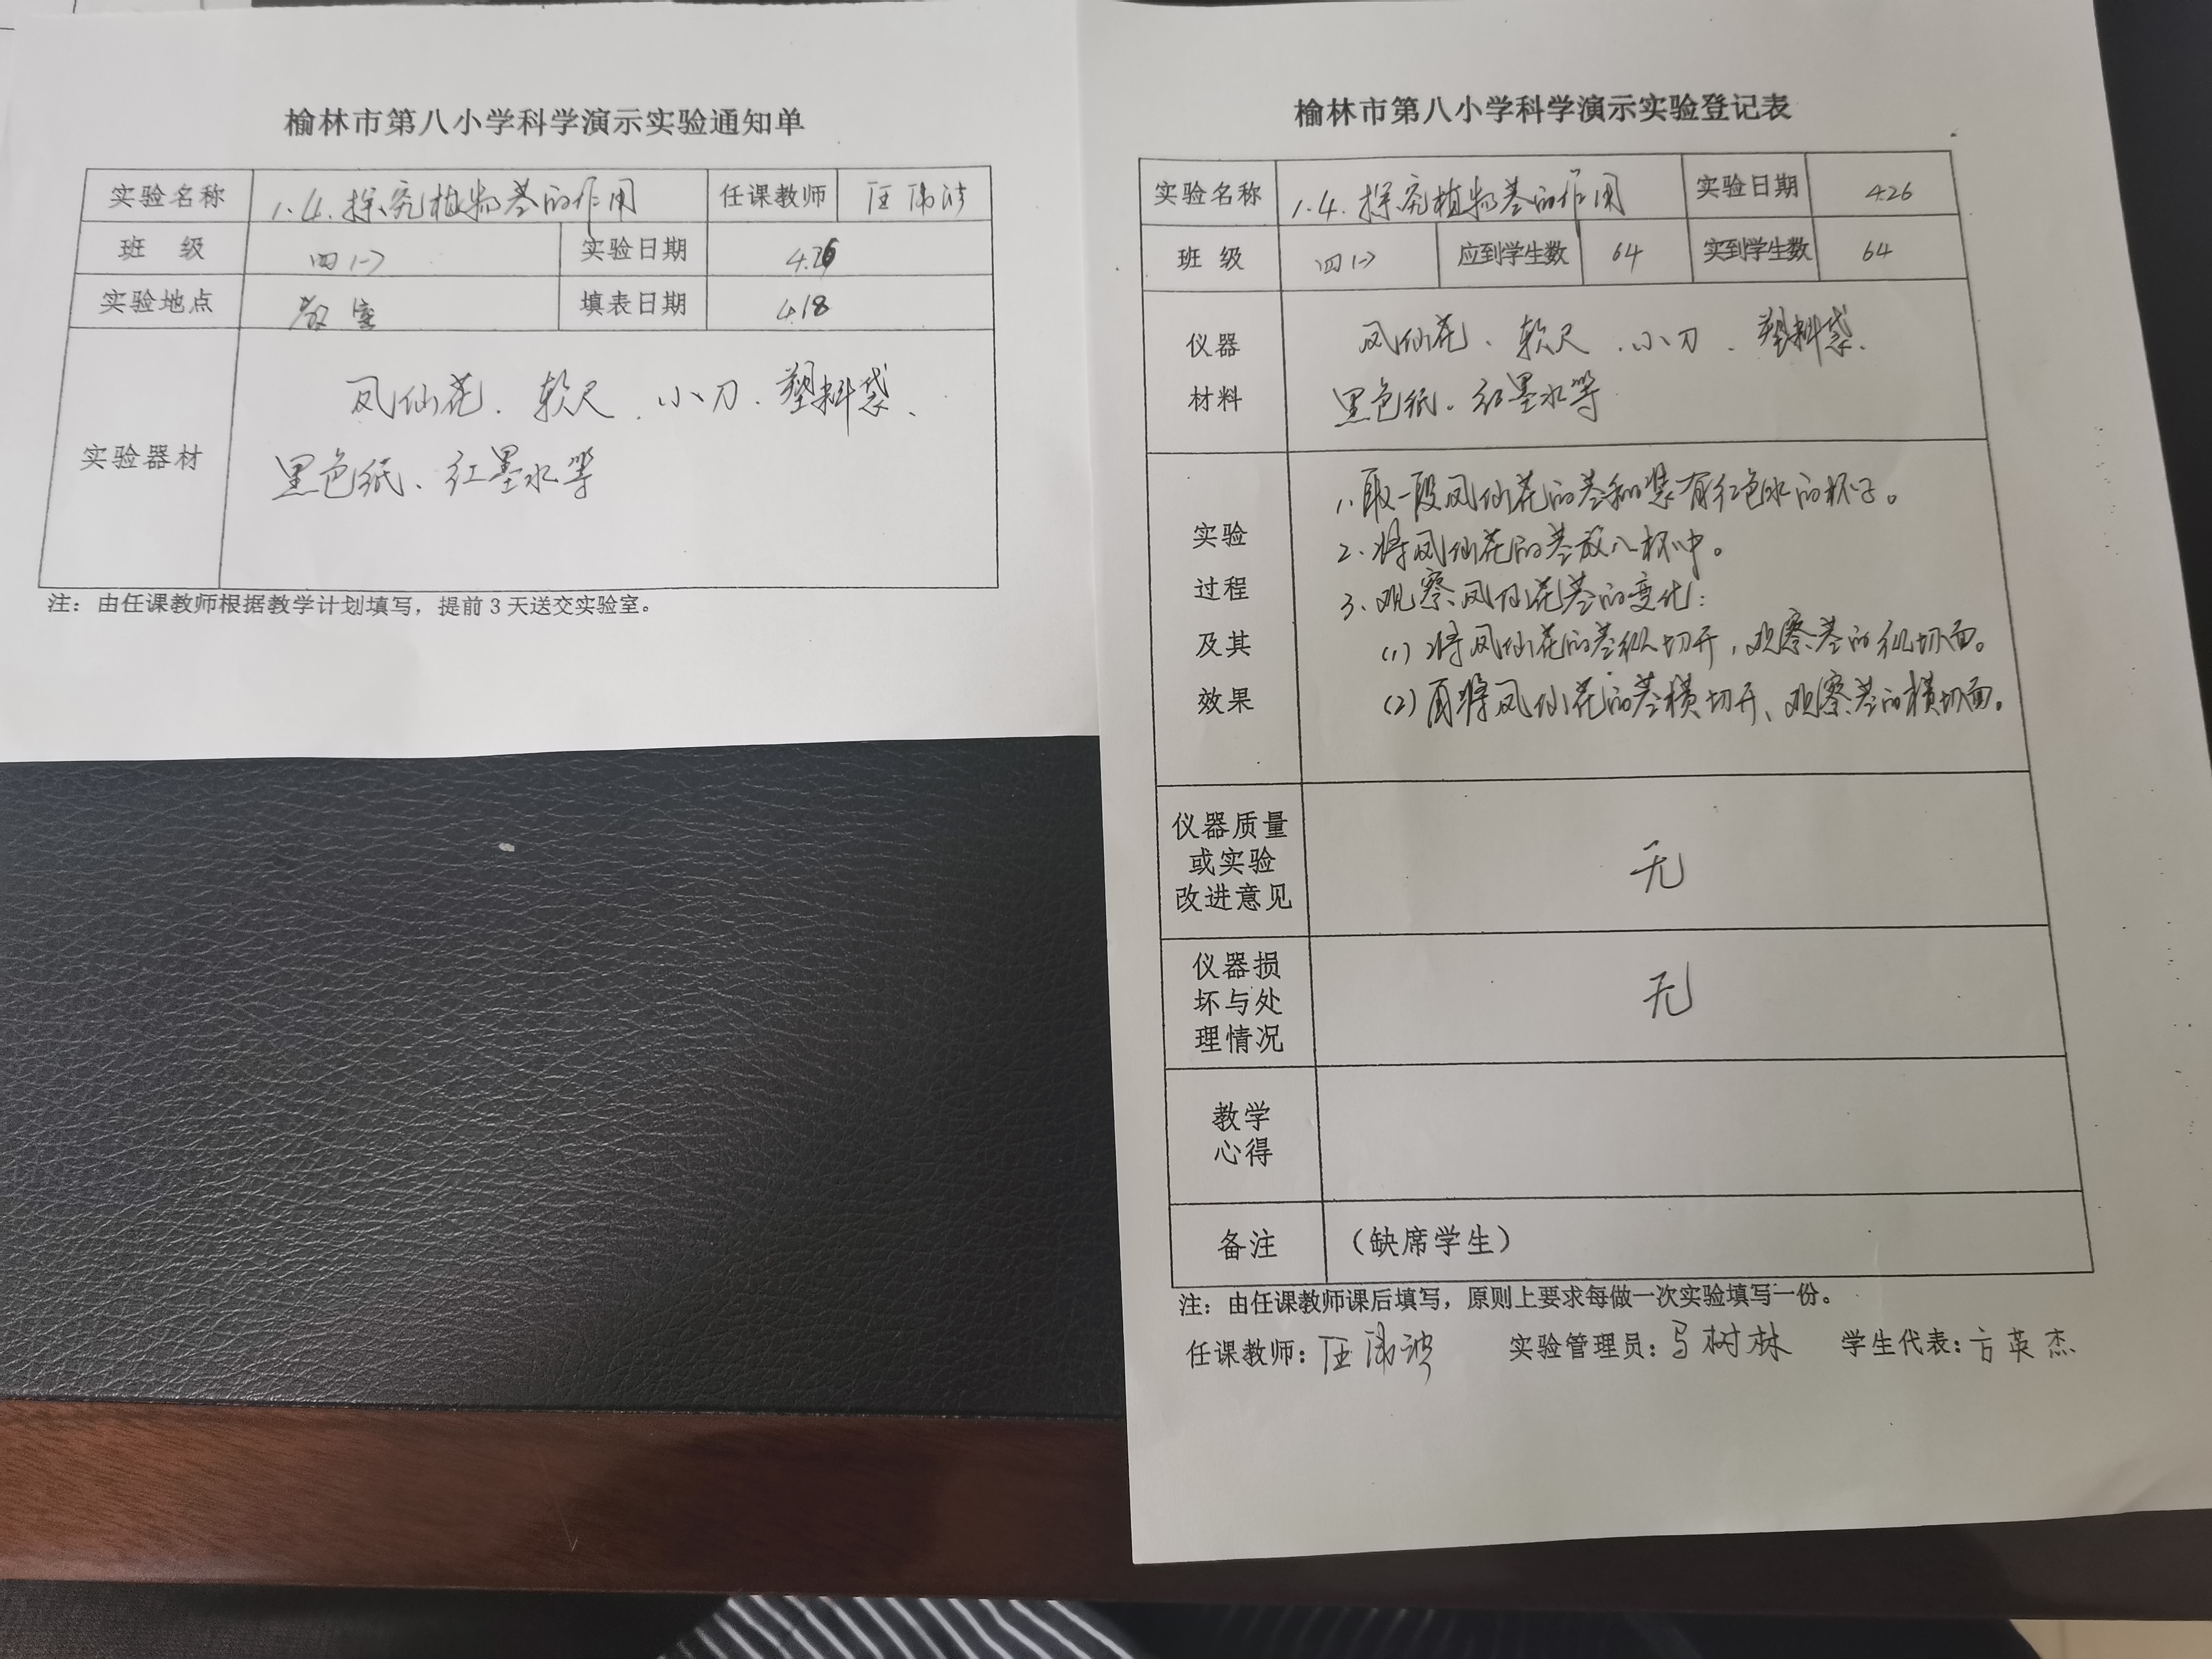 榆林市第八小学科学演示实验通知单
实验名称 1.4.探究植物茎的作用 任课教师
班 级 四(一) 实验日期 4.26
实验地点 教室 填表日期 4.18
实验器材 凤仙花、软尺、小刀、塑料袋、
黑色纸、红墨水等
注：由任课教师根据教学计划填写，提前3天送交实验室。
榆林市第八小学科学演示实验登记表
实验名称 1.4.探究植物茎的作用 实验日期 4.26
班 级 四(一) 应到学生数 64 实到学生数 64
仪器
材料
凤仙花、软尺、小刀、塑料袋、
黑色纸、红墨水等
实验
过程
及其
效果
1.取一段凤仙花的茎和装有红色水的杯子。
2.将凤仙花的茎放入杯中。
3.观察凤仙花茎的变化：
(1)将凤仙花的茎纵切开，观察茎的纵切面。
(2)再将凤仙花的茎横切开、观察茎的横切面。
仪器质量
或实验
改进意见
无
仪器损
坏与处
理情况
无
教学
心得
备注 （缺席学生）
注：由任课教师课后填写，原则上要求每做一次实验填写一份。
任课教师： 实验管理员：马树林 学生代表：方英杰